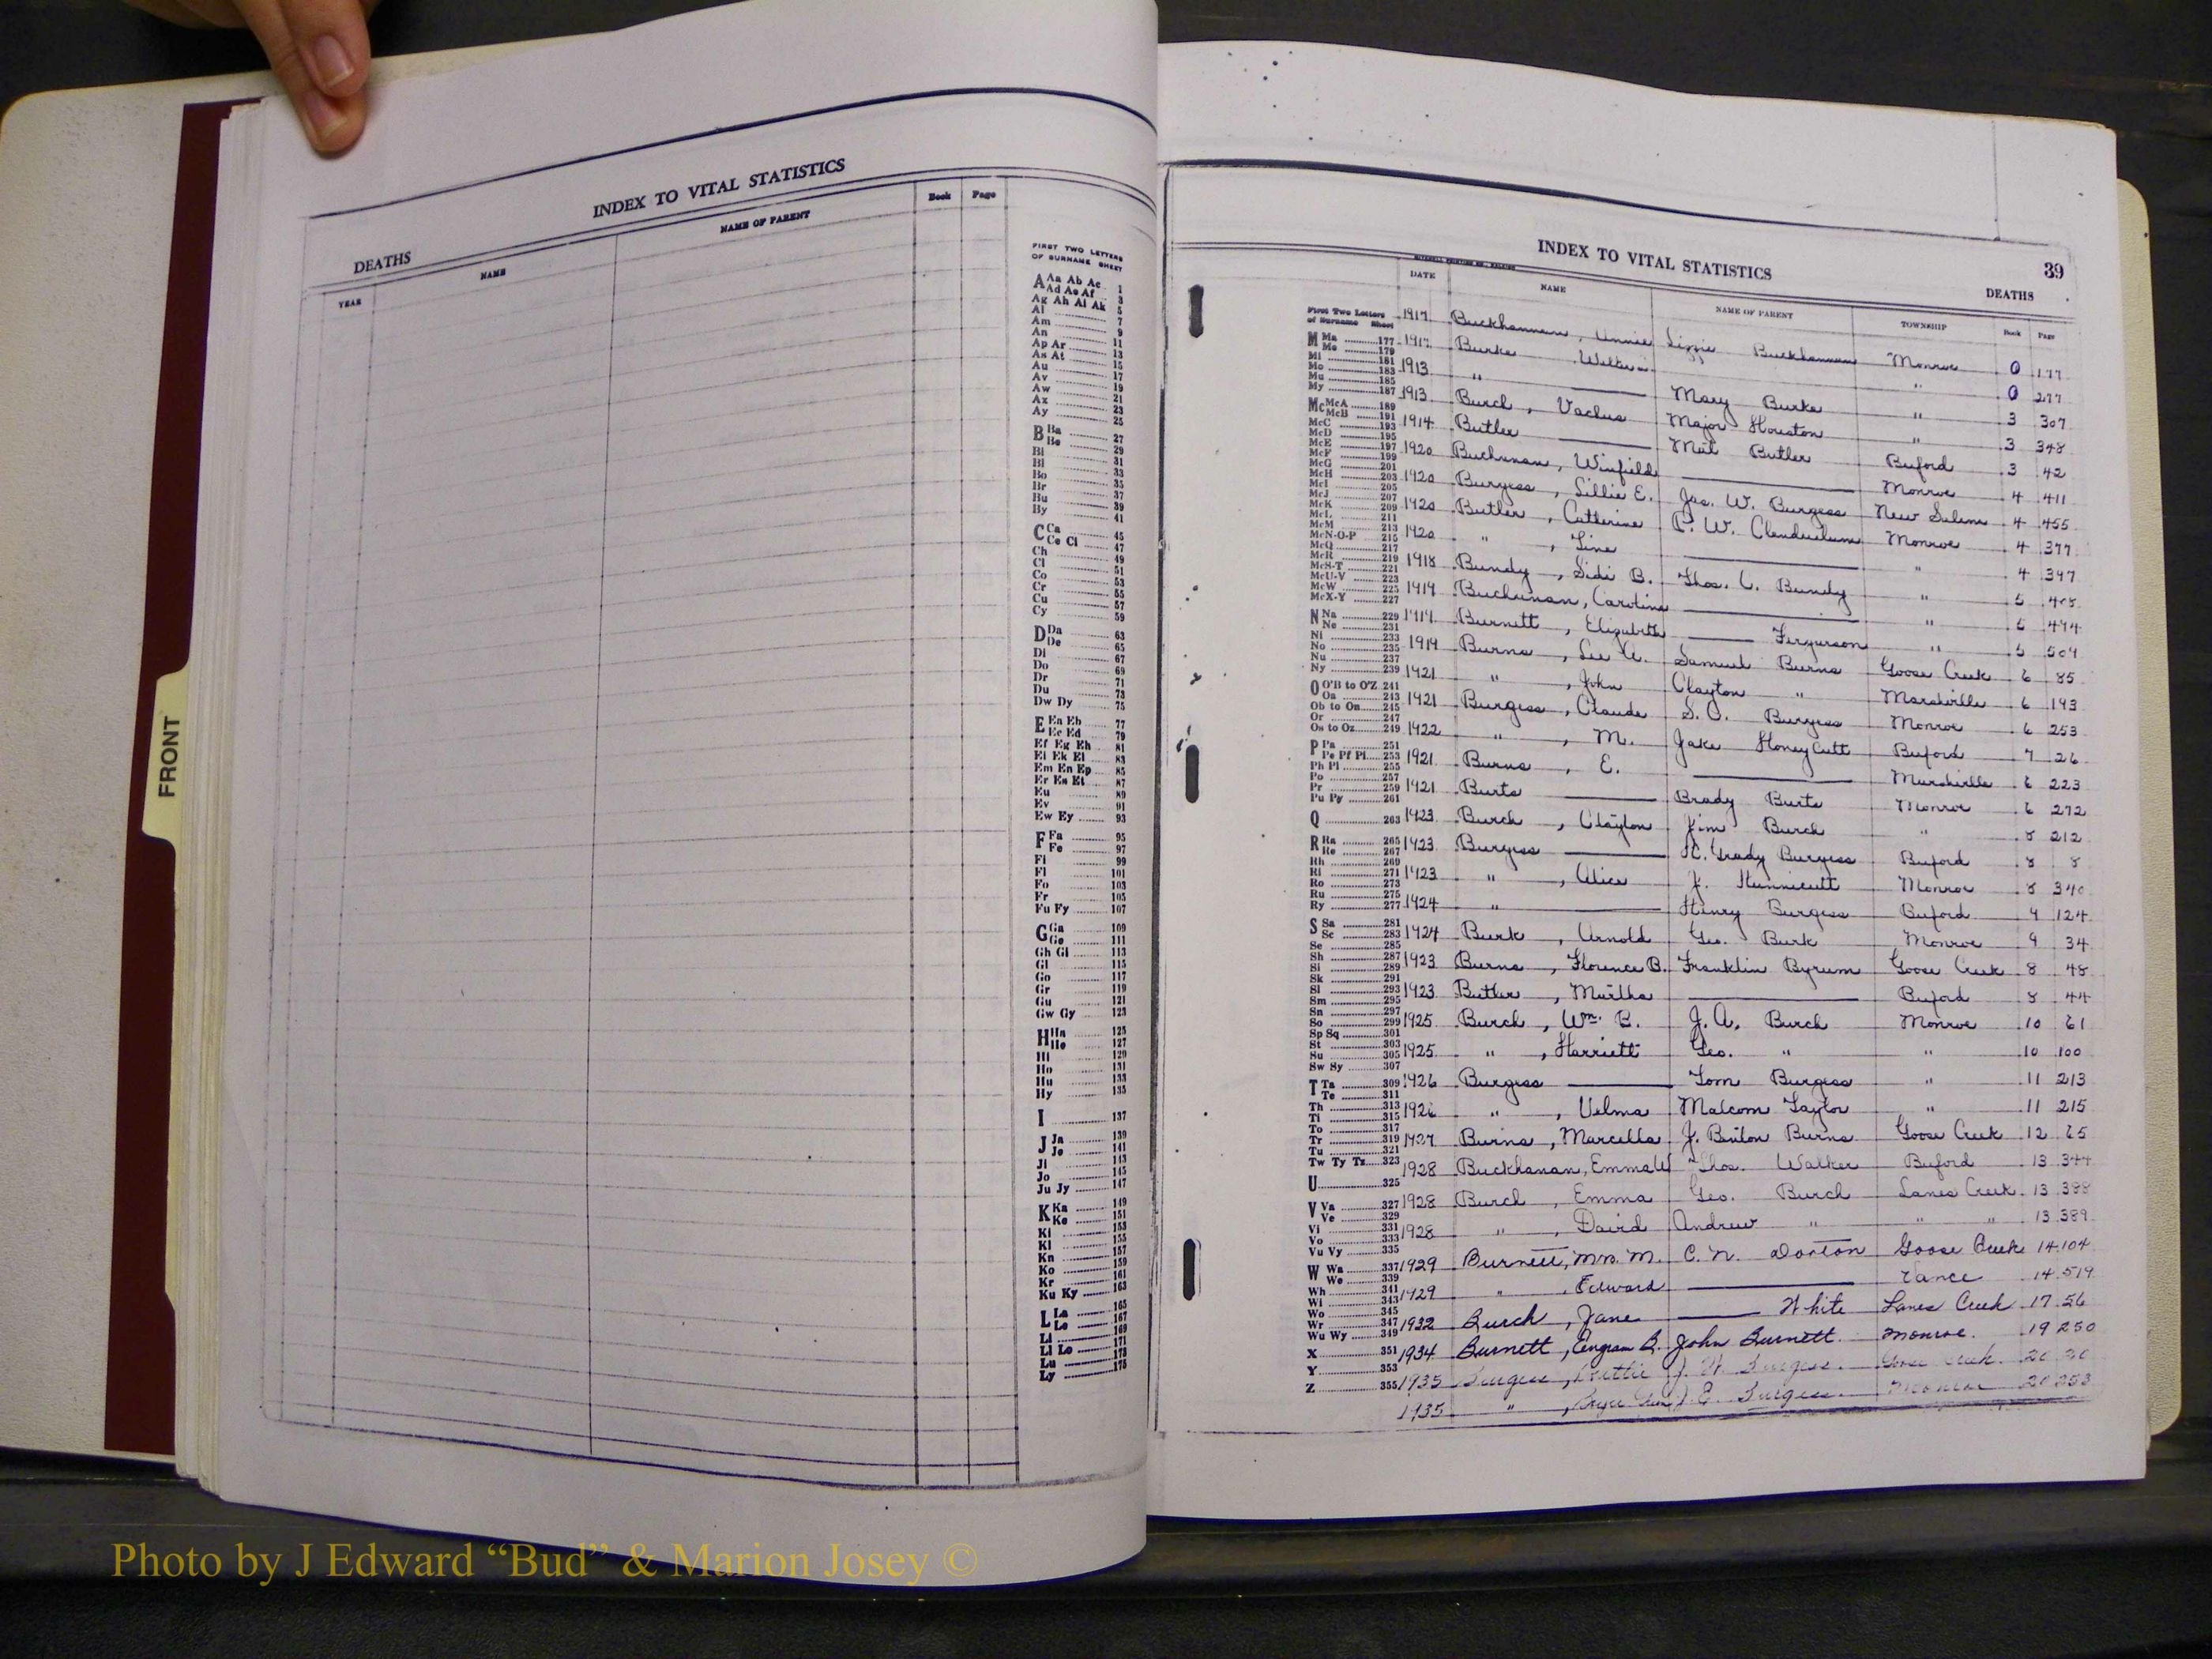 INDEX TO VITAL STATISTICS
DEATHS
YEAR NAME NAME OF PARENT Book Page
FIRST TWO LETTERS
OF SURNAME SHEET
A Aa Ab Ac 1
Ad Ae Af 3
Ag Ah Ai Ak 5
Al 7
Am 9
An 11
Ap Ar 13
As At 15
Au 17
Av 19
Aw 21
Ax 23
Ay 25
B Ba 27
Be 29
Bi 31
Bl 33
Bo 35
Br 37
Bu 39
By 41
C Ca 45
Ce Ci 47
Ch 49
Cl 51
Co 53
Cr 55
Cu 57
Cy 59
D Da 63
De 65
Di 67
Do 69
Dr 71
Du 73
Dw Dy 75
E Ea Eb 77
Ec Ed 79
Ef Eg Eh 81
Ei Ek El 83
Em En Ep 85
Er Es Et 87
Eu 89
Ev 91
Ew Ey 93
F Fa 95
Fe 97
Fi 99
Fl 101
Fo 103
Fr 105
Fu Fy 107
G Ga 109
Ge 111
Gh Gi 113
Gl 115
Go 117
Gr 119
Gu 121
Gw Gy 123
H Ha 125
He 127
Hi 129
Ho 131
Hu 133
Hy 135
I 137
J Ja 139
Je 141
Ji 143
Jo 145
Ju Jy 147
K Ka 149
Ke 151
Ki 153
Kl 155
Kn 157
Ko 159
Kr 161
Ku Ky 163
L La 165
Le 167
Li 169
Ll Lo 171
Lu 173
Ly 175
FRONT
INDEX TO VITAL STATISTICS 39
DEATHS
DATE NAME NAME OF PARENT TOWNSHIP Book Page
First Two Letters
of Surname Sheet
M Ma 177
Me 179
Mi 181
Mo 183
Mu 185
My 187
Mc McA 189
McB 191
McC 193
McD 195
McE 197
McF 199
McG 201
McH 203
McI 205
McJ 207
McK 209
McL 211
McM 213
McN-O-P 215
McQ 217
McR 219
McS-T 221
McU-V 223
McW 225
McX-Y 227
N Na 229
Ne 231
Ni 233
No 235
Nu 237
Ny 239
O O'B to O'Z 241
Oa 243
Ob to On 245
Or 247
Os to Oz 249
P Pa 251
Pe Pf Pi 253
Ph Pl 255
Po 257
Pr 259
Pu Py 261
Q 263
R Ra 265
Re 267
Rh 269
Ri 271
Ro 273
Ru 275
Ry 277
S Sa 281
Sc 283
Se 285
Sh 287
Si 289
Sk 291
Sl 293
Sm 295
Sn 297
So 299
Sp Sq 301
St 303
Su 305
Sw Sy 307
T Ta 309
Te 311
Th 313
Ti 315
To 317
Tr 319
Tu 321
Tw Ty Tz 323
U 325
V Va 327
Ve 329
Vi 331
Vo 333
Vu Vy 335
W Wa 337
We 339
Wh 341
Wi 343
Wo 345
Wr 347
Wu Wy 349
X 351
Y 353
Z 355
1917 Buckhannan, Annie Lizzie Buckhannan Monroe 0 177
Burke " 0 277
1913 " Mary Burke " 3 307
1913 Burch, Major Houston " 3 348
1914 Butler Mat Butler Buford 3 42
1920 Buchanan, Winfield Monroe 4 411
1920 Burgess, Lillie E. Jas. W. Burgess New Salem 4 455
1920 Butler, Catherine P. W. Monroe 4 377
1920 " , Line " 4 397
1918 Bundy, Thos. C. Bundy " 5
1919 Buchanan, Caroline " 5 494
1919 Burnett, Elizabeth Fergurson " 5 509
1919 Burns, Lee A. Samuel Burns Goose Creek 6 85
1921 " , John Clayton " Marshville 6 193
1921 Burgess, Claude S. O. Burgess Monroe 6 253
1922 " , M. Jake Honeycutt Buford 7 26
1921 Burns, E. Marshville 6 223
1921 Burts Brady Burts Monroe 6 272
1923 Burch, Clayton Jim Burch " 8 212
1923 Burgess Grady Burgess Buford 8 8
1923 " , Alice J. Hunnicutt Monroe 8 340
1924 " Henry Burgess Buford 9 124
1924 Burk, Arnold Geo. Burk Monroe 9 34
1923 Burns, Florence B. Franklin Byrum Goose Creek 8 48
1923 Butler, Martha Buford 8 44
1925 Burch, Wm. B. J. A. Burch Monroe 10 61
1925 " , Harriett Geo. " " 10 100
1926 Burgess Tom Burgess " 11 213
1926 " , Velma Malcom Taylor " 11 215
1927 Burns, Marcella J. Benton Burns Goose Creek 12 65
1928 Buckhanan, Emma W Thos. Walker Buford 13 344
1928 Burch, Emma Geo. Burch Lanes Creek 13 388
1928 " , David Andrew " " " 13 389
1929 Burnett, Mrs. M. C. N. Dorton Goose Creek 14 104
1929 " , Edward Vance 14 519
1932 Burch, Jane White Lanes Creek 17 56
1934 Burnett, B. John Burnett Monroe 19 250
1935 Burgess, J. W. Burgess Goose Creek 20
1935 " , J. E. Burgess Monroe 20 253
Photo by J Edward “Bud” & Marion Josey ©